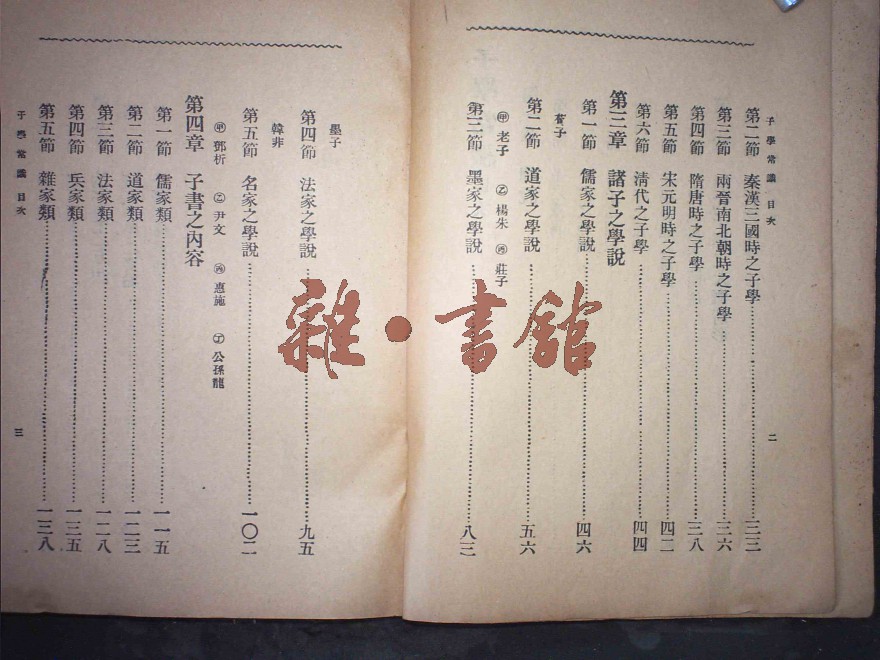 子學常識 目次
二
第二節 秦漢三國時之子學……三三
第三節 兩晉南北朝時之子學……三六
第四節 隋唐時之子學……三八
第五節 宋元明時之子學……四二
第六節 清代之子學……四四
第三章 諸子之學說
第一節 儒家之學說……四六
荀子
第二節 道家之學說……五六
㊙甲 老子 乙 楊朱 丙 莊子
第三節 墨家之學說……八三
墨子
第四節 法家之學說……九五
韓非
第五節 名家之學說……一〇二
甲 鄧析 乙 尹文 丙 惠施 丁 公孫龍
第四章 子書之內容
第一節 儒家類……一一五
第二節 道家類……一二三
第三節 法家類……一二八
第四節 兵家類……一三五
第五節 雜家類……一三八
子學常識 目次
三
雜·書館